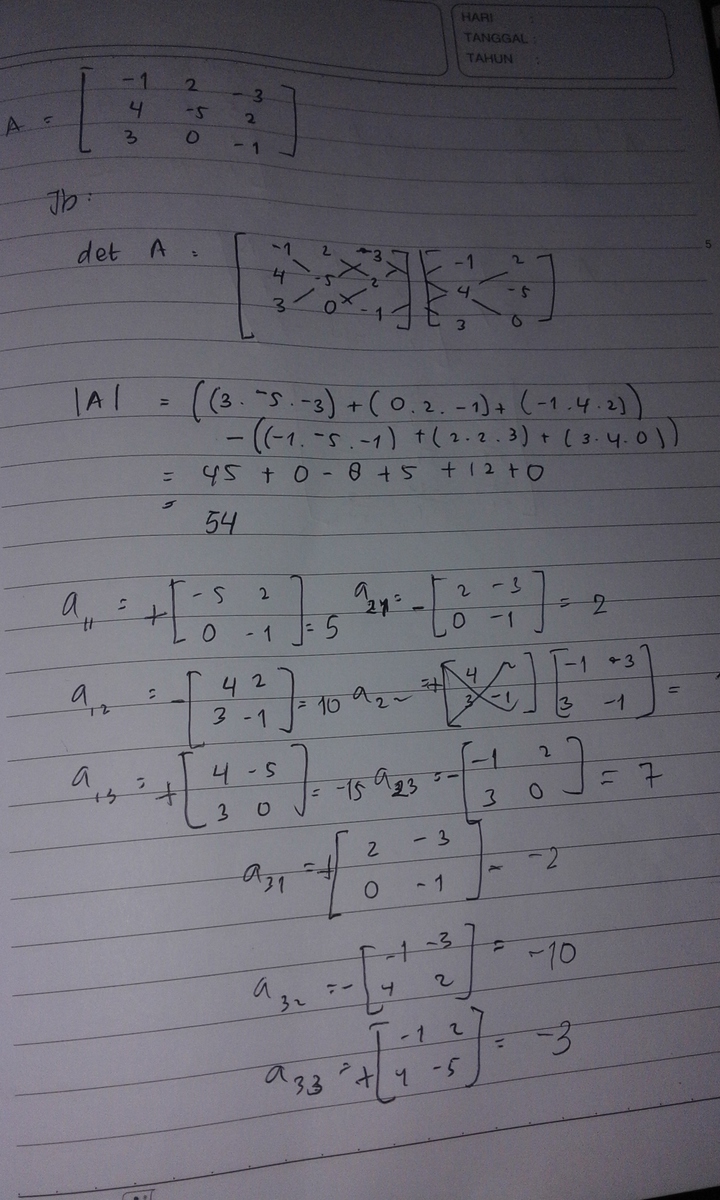 HARI :
TANGGAL :
TAHUN :
-1 2 -3
A = 4 -5 2
3 0 -1
Jb:
-1 2 -3 -1 2
det A = 4 -5 2 4 -5
3 0 -1 3 0
5
|A| = ((3. -5. -3) + (0. 2. -1) + (-1. 4. 2))
- ((-1. -5. -1) + (2. 2. 3) + (3. 4. 0))
= 45 + 0 - 8 + 5 + 12 + 0
= 54
a11 = + [-5 2 / 0 -1] = 5 a21 = - [2 -3 / 0 -1] = 2
a12 = - [4 2 / 3 -1] = 10 a22 = + [-1 -3 / 3 -1] =
a13 = + [4 -5 / 3 0] = -15 a23 = - [-1 2 / 3 0] = 7
a31 = + [2 -3 / 0 -1] = -2
a32 = - [-1 -3 / 4 2] = -10
a33 = + [-1 2 / 4 -5] = -3